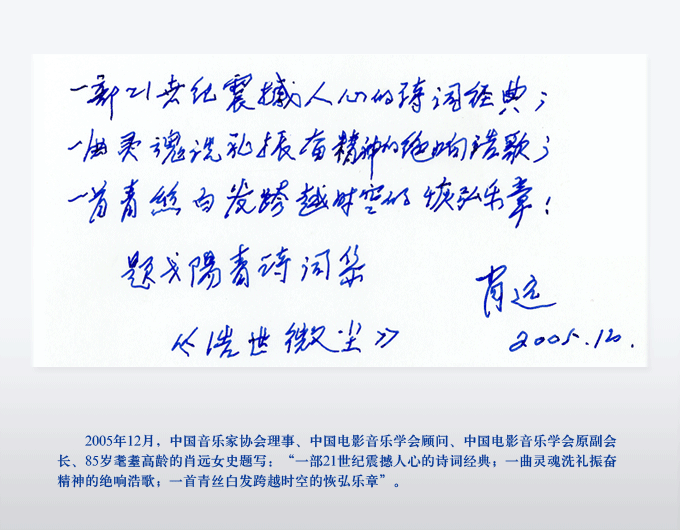 一部21世纪震撼人心的诗词经典；
一曲灵魂洗礼振奋精神的绝响浩歌；
一首青丝白发跨越时空的恢弘乐章！
题戈阳青诗词集
《浩世微尘》
肖远
2005.12.
2005年12月，中国音乐家协会理事、中国电影音乐学会顾问、中国电影音乐学会原副会
长、85岁耄耋高龄的肖远女史题写：“一部21世纪震撼人心的诗词经典；一曲灵魂洗礼振奋
精神的绝响浩歌；一首青丝白发跨越时空的恢弘乐章”。